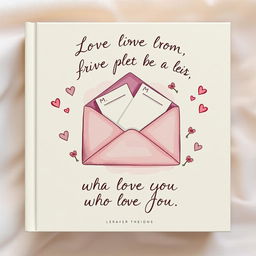 Love line lrom,
frive plet be a leis,
M
M
wha love you
who love you.
LERAYER THEIGNS